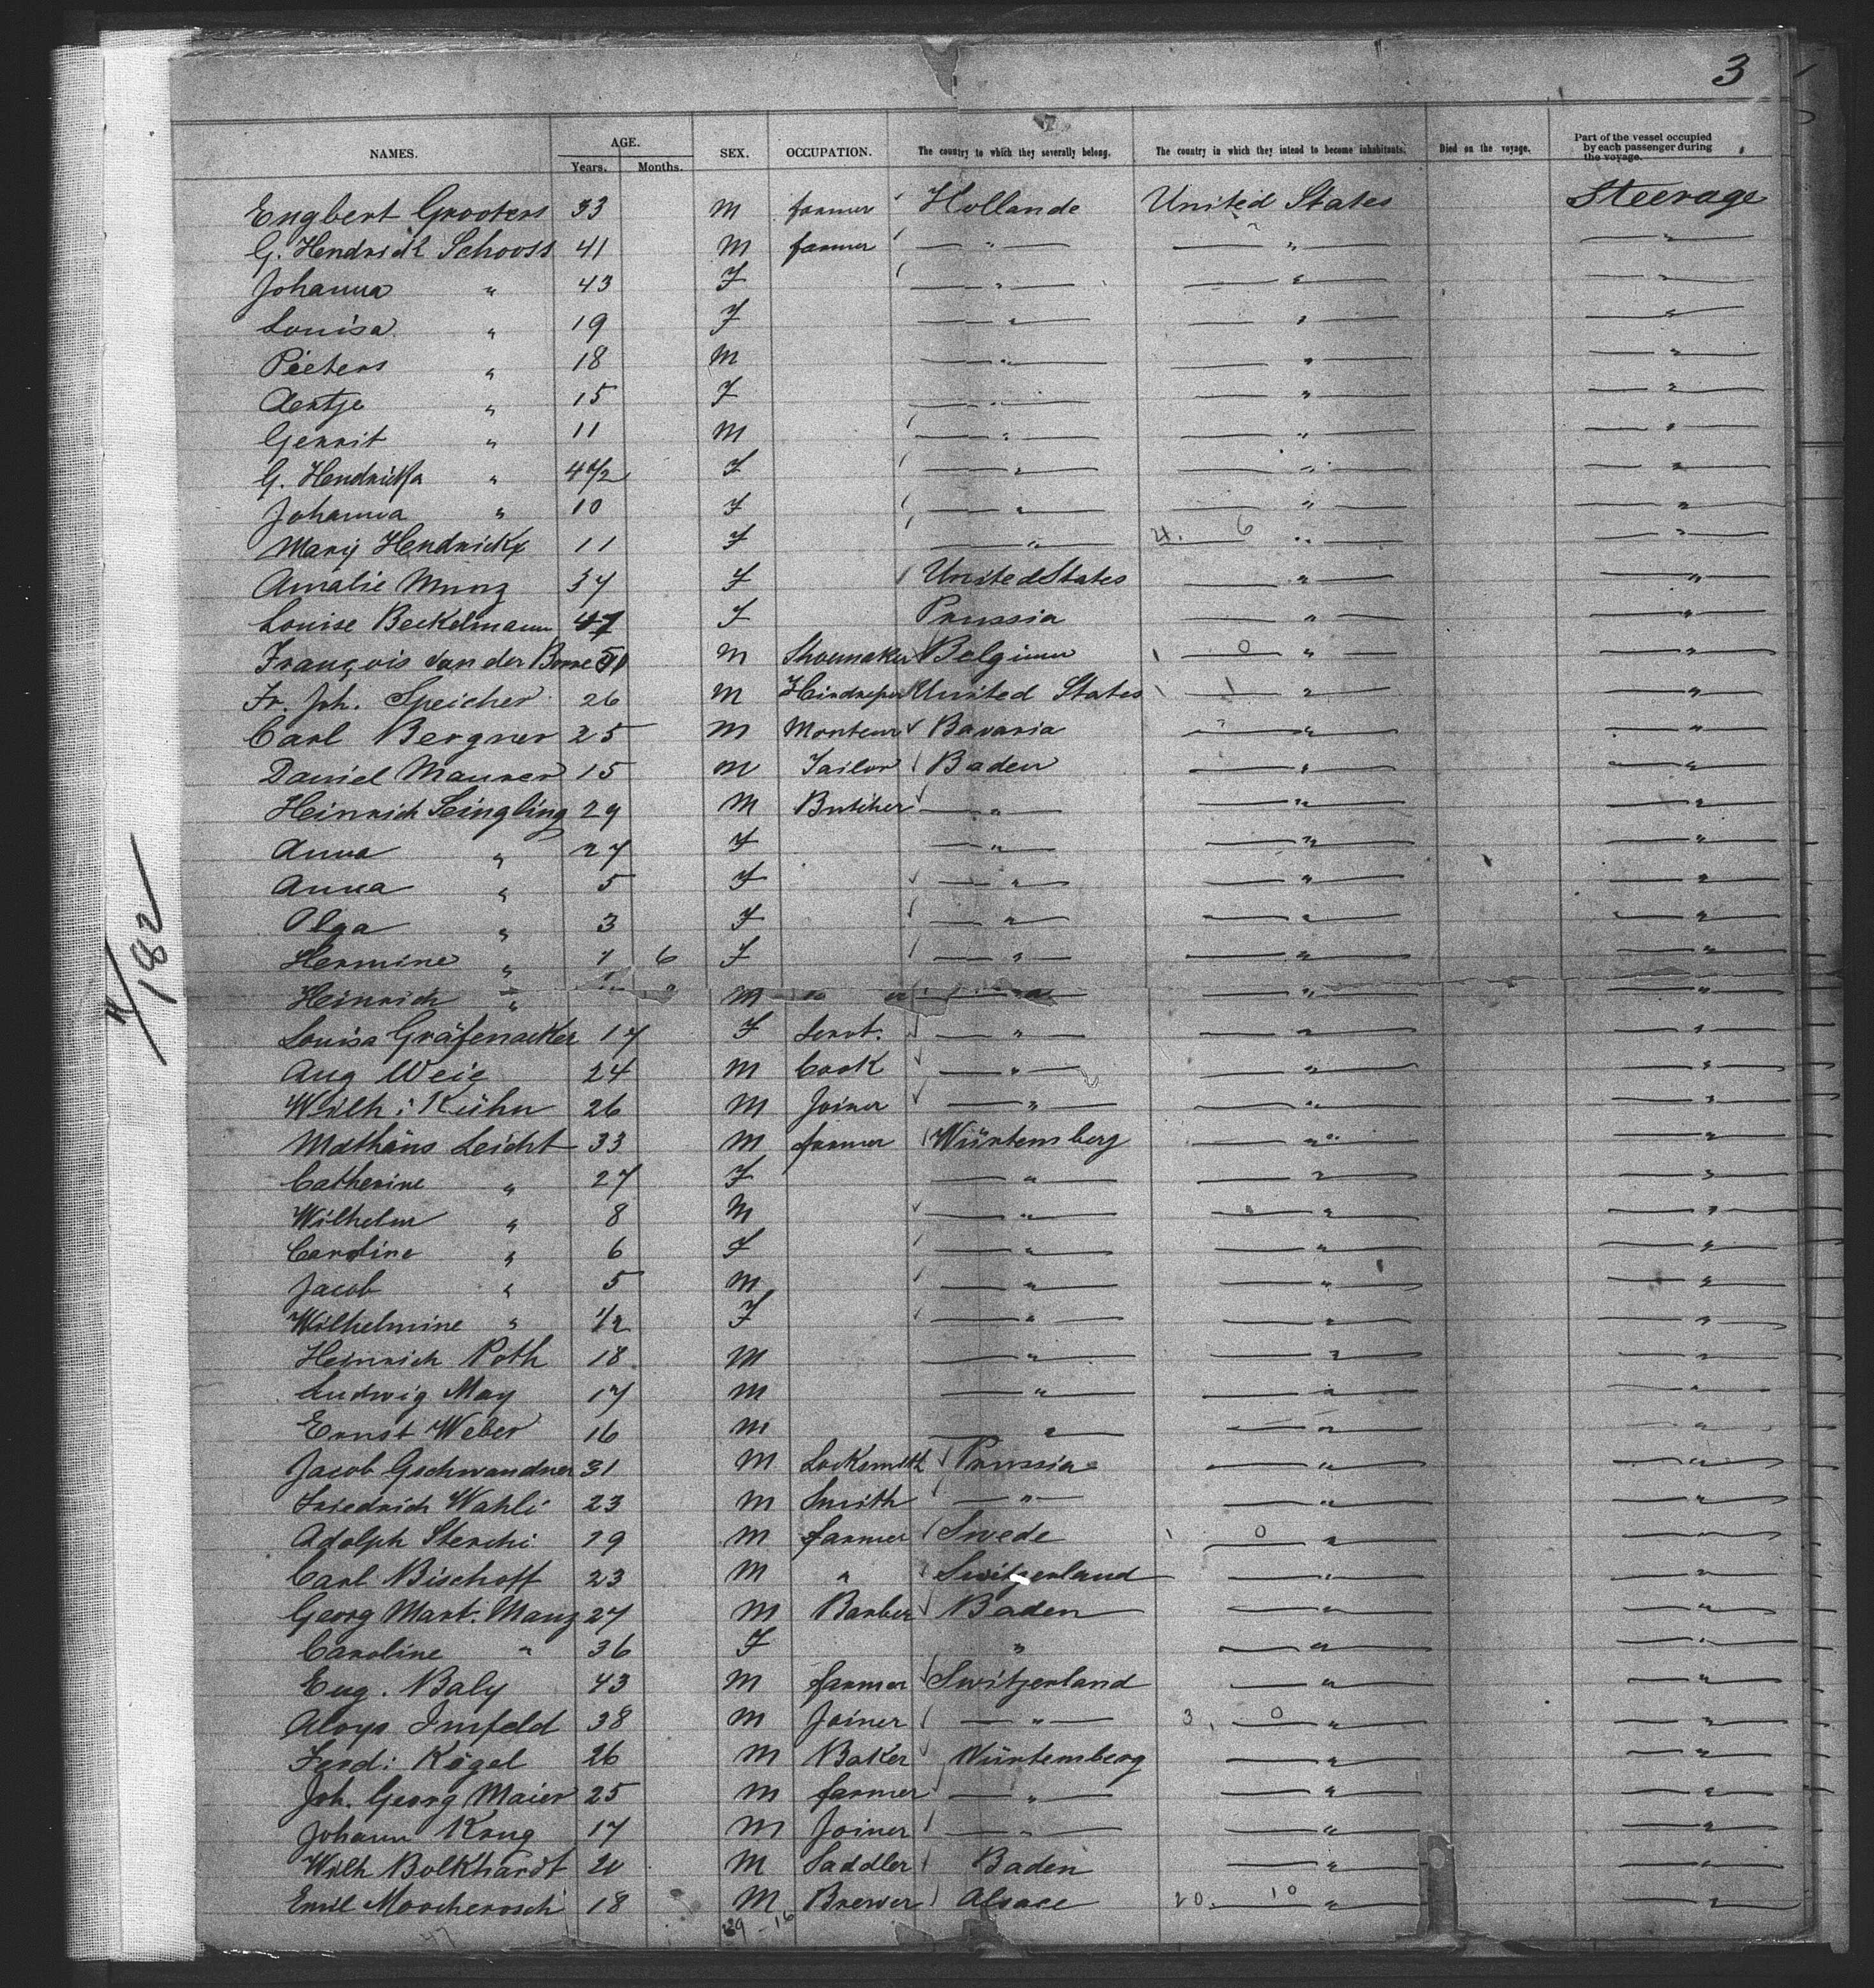 3
NAMES. AGE. Years. Months. SEX. OCCUPATION. The country to which they severally belong. The country in which they intend to become inhabitants. Died on the voyage. Part of the vessel occupied by each passenger during the voyage.
Engbert Grooters 33 M farmer Hollande United States Steerage
G. Hendrick Schooss 41 M farmer — " — — " — — " —
Johanna " 43 F — " — — " — — " —
Louisa " 19 F — " — — " — — " —
Pieters " 18 M — " — — " — — " —
Aertje " 15 F — " — — " — — " —
Gerrit " 11 M — " — — " — — " —
G. Hendrika " 4 1/2 F — " — — " — — " —
Johanna " 10 F — " — — " — — " —
Marij Hendrickx 11 F — " — 4. 6 — " — — " —
Amalie Munz 37 F United States — " — — " —
Louise Beckelmann 47 F Prussia — " — — " —
François van der Borre 51 M Shoemaker Belgium 1 0 — " — — " —
Fr. Joh. Speicher 26 M United States 1 1 — " — — " —
Carl Bergner 25 M Monteur Bavaria — " — — " —
Daniel Maurer 15 M Tailor Baden — " — — " —
Heinrich Seingling 29 M Butcher — " — — " — — " —
Anna " 27 F — " — — " — — " —
Anna " 5 F — " — — " — — " —
Olga " 3 F — " — — " — — " —
Hermine " 1 6 F — " — — " — — " —
Heinrich " M — " — — " — — " —
Louisa Gräfenacker 17 F Servt. — " — — " — — " —
Aug Weig 24 M Cook — " — — " — — " —
Wilh: Kühn 26 M Joiner — " — — " — — " —
Mathäus Leicht 33 M farmer Würtemsberg — " — — " —
Catherine " 27 F — " — — " — — " —
Wilhelm " 8 M — " — — " — — " —
Caroline " 6 F — " — — " — — " —
Jacob " 5 M — " — — " — — " —
Wilhelmine " 1/2 F — " — — " — — " —
Heinrich Roth 18 M — " — — " — — " —
Ludwig May 17 M — " — — " — — " —
Ernst Weber 16 M — " — — " — — " —
Jacob Gschwandner 31 M Locksmith Prussia — " — — " —
Friedrich Wahli 23 M Smith — " — — " — — " —
Adolph Sterchi 19 M farmer Swede 1 0 — " — — " —
Carl Bischoff 23 M " Switzerland — " — — " —
Georg Mart. Manz 27 M Barber Baden — " — — " —
Caroline " 36 F " — " — — " —
Eug. Baly 43 M farmer Switzerland — " — — " —
Aloys Imfeld 38 M Joiner — " — 3. 0 — " — — " —
Ferd: Kögel 26 M Baker Würtemberg — " — — " —
Joh. Georg Maier 25 M farmer — " — — " — — " —
Johann Krug 17 M Joiner — " — — " — — " —
Wilh Bolkhardt 20 M Saddler Baden — " — — " —
Emil Moocherosch 18 M Brewer Alsace 20. 10 — " — — " —
47 39 - 16
182